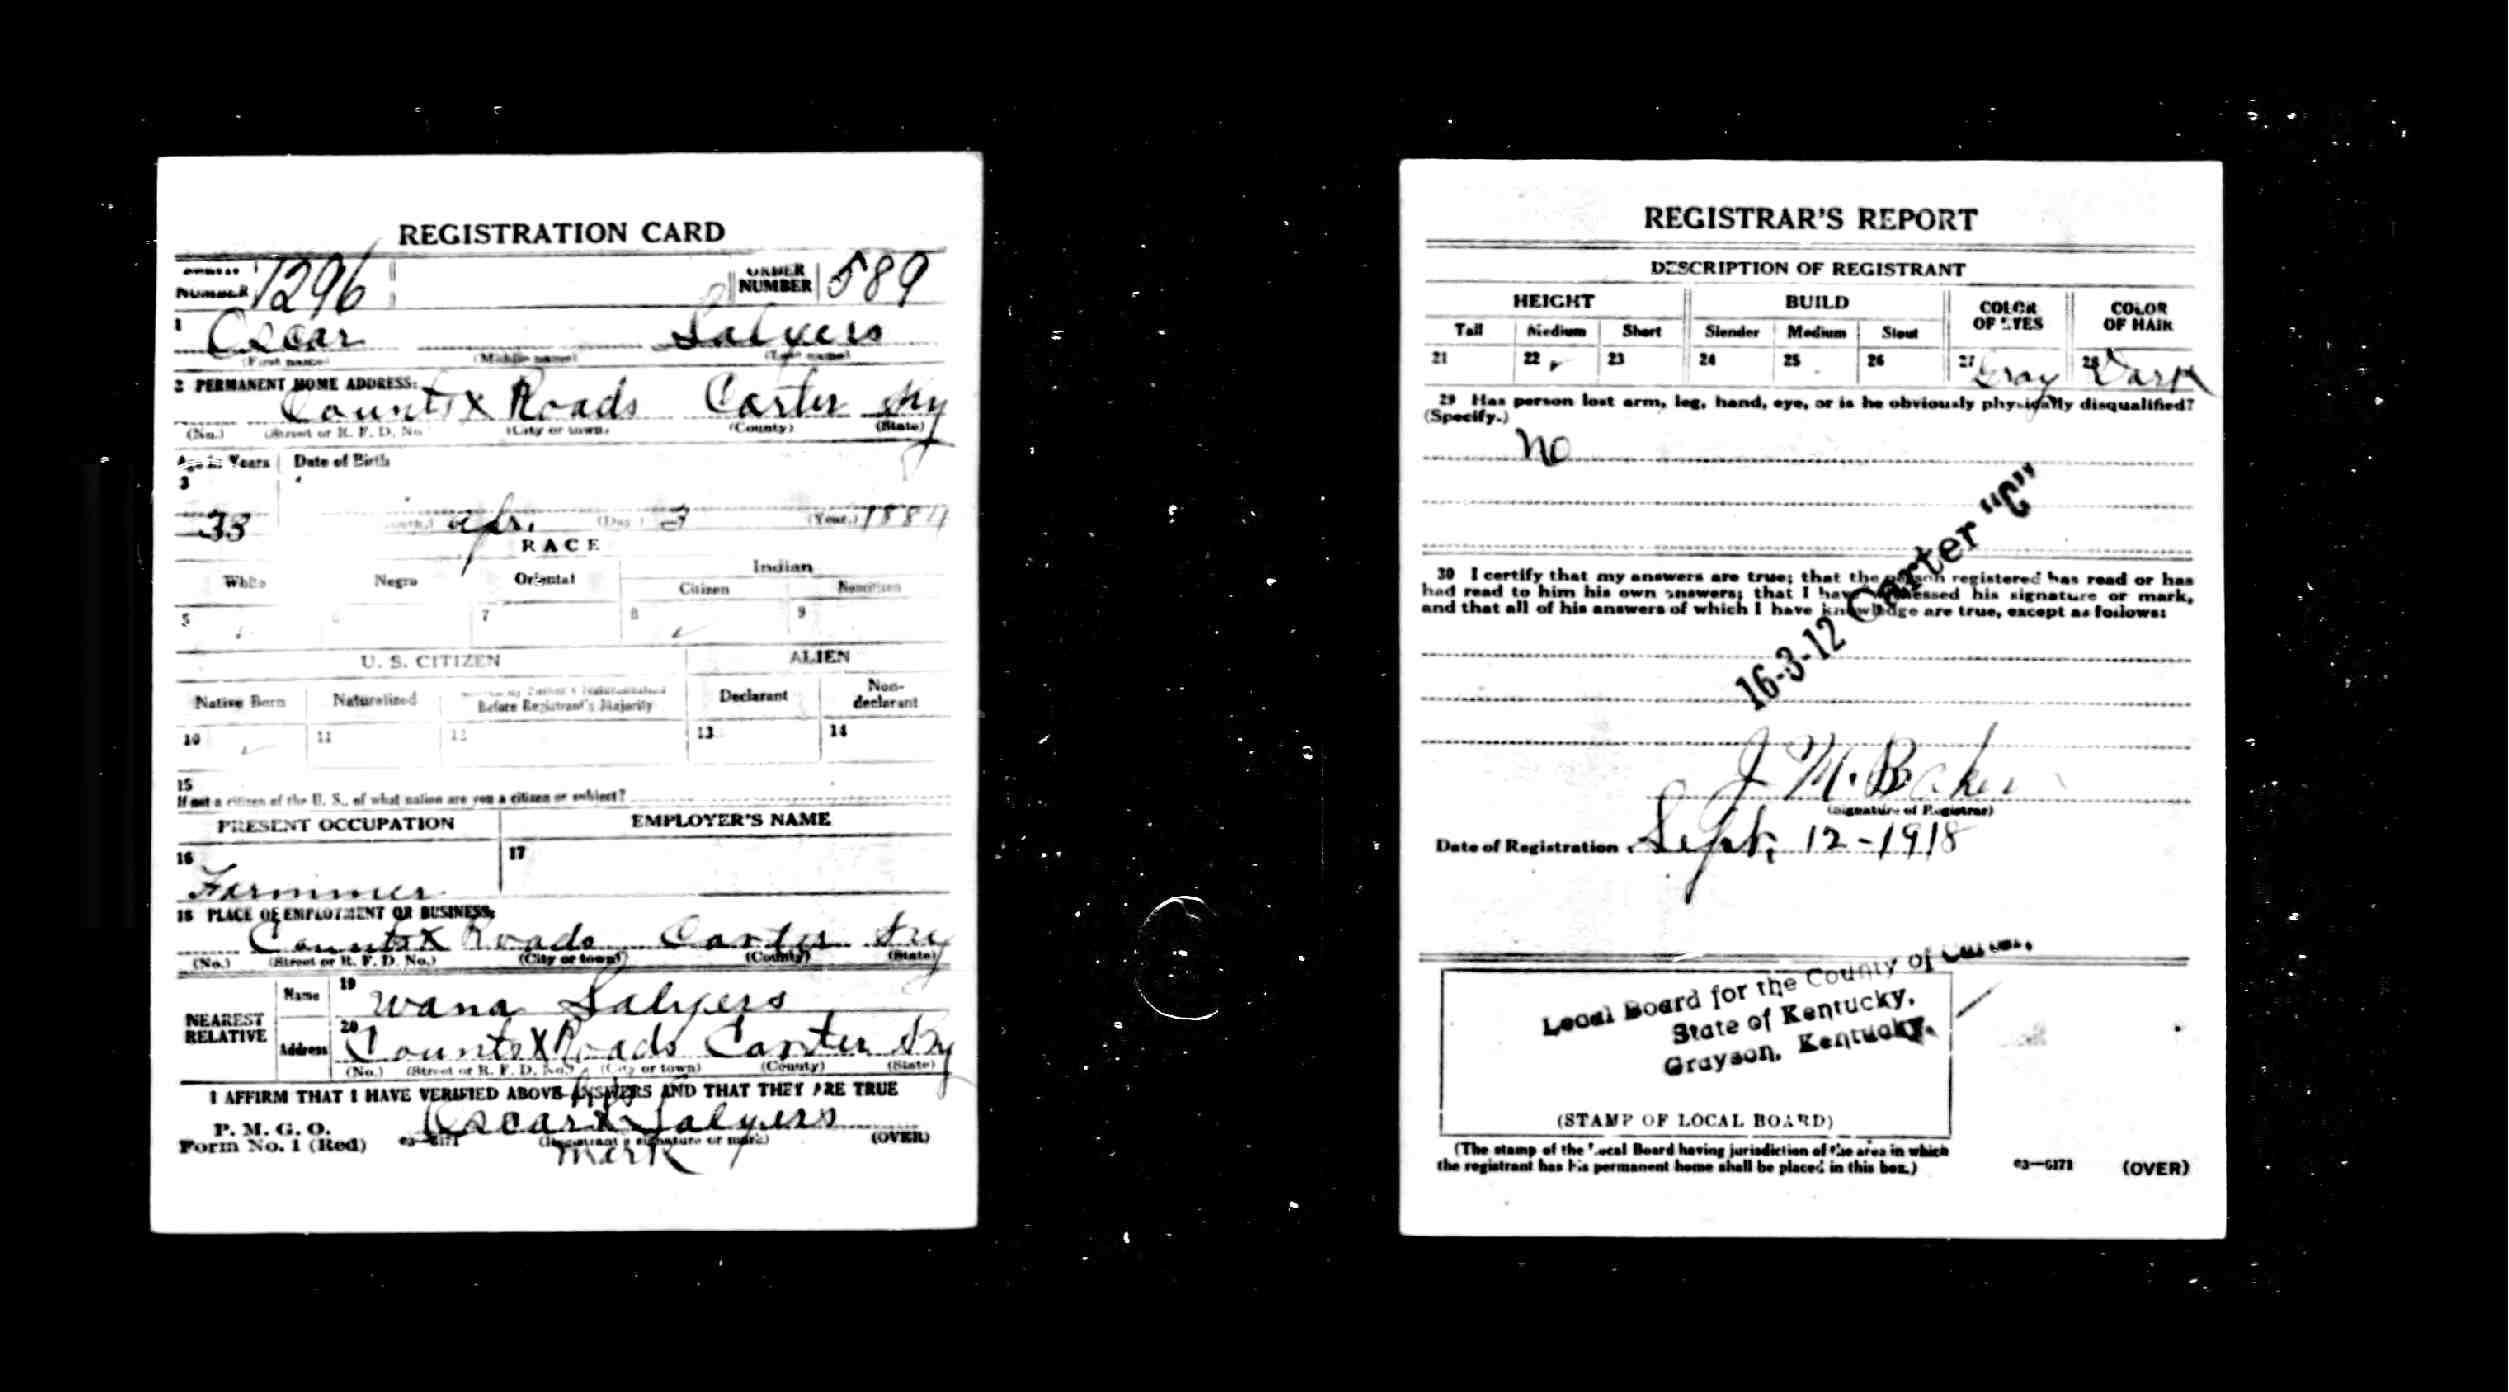 REGISTRATION CARD
NUMBER 1296
ORDER NUMBER 589
1 Oscar Salyers
(First name) (Middle name) (Last name)
2 PERMANENT HOME ADDRESS:
Counts X Roads Carter Ky
(No.) (Street or R. F. D. No (City or town) (County) (State)
Age in Years Date of Birth
3
33 apr. (Day) 3 (Year.)
RACE
White Negro Oriental Indian
Citizen Noncitizen
5 7 8 9
U. S. CITIZEN ALIEN
Native Born Naturalized Before Registrant's Majority Declarant Non-declarant
10 11 12 13 14
15
If not a citizen of the U. S., of what nation are you a citizen or subject?
PRESENT OCCUPATION EMPLOYER'S NAME
16 17
Farmmer
18 PLACE OF EMPLOYMENT OR BUSINESS:
Counts X Roads Carter Ky
(No.) (Street or R. F. D. No.) (City or town) (County) (State)
NEAREST RELATIVE
Name 19 Wana Salyers
Address 20 Counts X Roads Carter Ky
(No.) (Street or R. F. D. No.) (City or town) (County) (State)
I AFFIRM THAT I HAVE VERIFIED ABOVE ANSWERS AND THAT THEY ARE TRUE
his
Oscar X Salyers
P. M. G. O.
Form No. 1 (Red) 03—6171 (Registrant's signature or mark) (OVER)
mark
REGISTRAR'S REPORT
DESCRIPTION OF REGISTRANT
HEIGHT BUILD COLOR OF EYES COLOR OF HAIR
Tall Medium Short Slender Medium Stout
21 22 23 24 25 26 27 Gray 28 Dark
29 Has person lost arm, leg, hand, eye, or is he obviously physically disqualified?
(Specify.)
No
30 I certify that my answers are true; that the person registered has read or has
had read to him his own answers; that I have witnessed his signature or mark,
and that all of his answers of which I have knowledge are true, except as follows:
16-3-12 Carter "C"
J M. Baker
(Signature of Registrar)
Date of Registration Sept. 12-1918
Local Board for the County of Carter,
State of Kentucky,
Grayson, Kentucky.
(STAMP OF LOCAL BOARD)
(The stamp of the Local Board having jurisdiction of the area in which
the registrant has his permanent home shall be placed in this box.)
03—6171 (OVER)